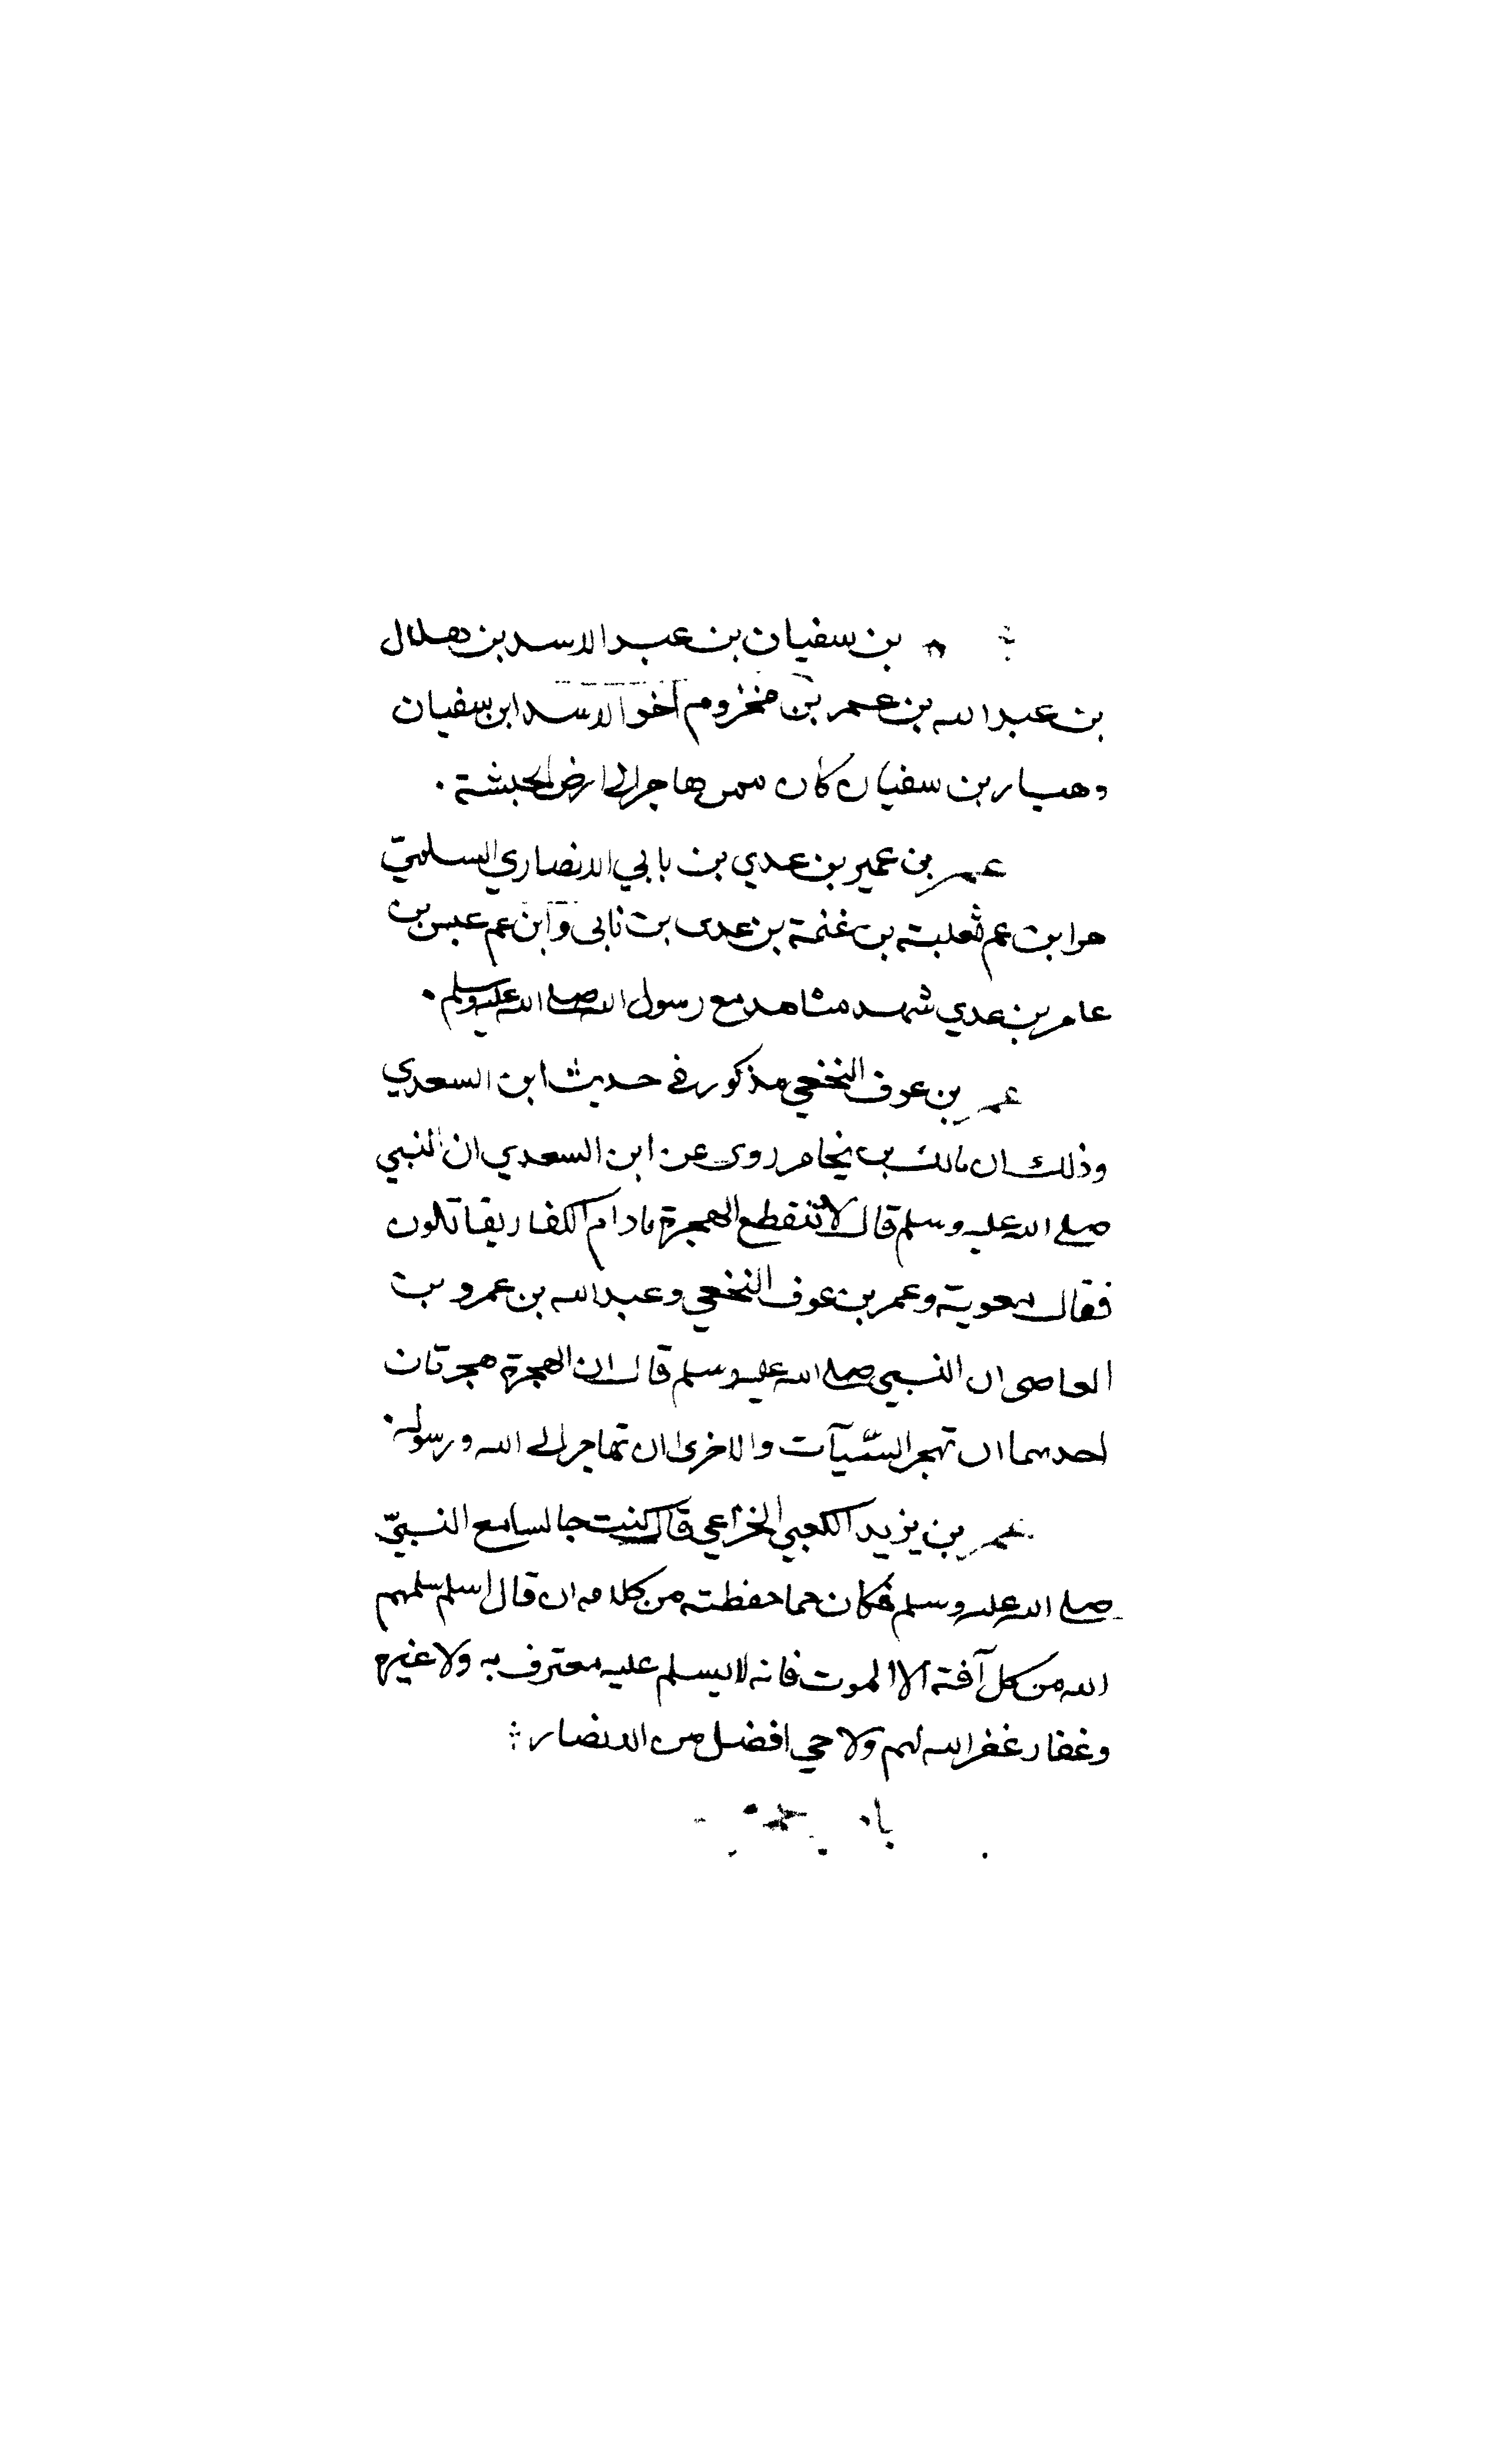 بن سفيان بن عبد الاسد بن هلال
بن عبد الله بن عمر بن مخزوم اخو الاسد ابن سفيان
وهبار بن سفيان كان ممن هاجر الى ارض الحبشة .
عمر بن عمير بن عدي بن بابي الانصاري السلميّ
هو ابن عم ثعلبة بن غنمة بن عدى بن نابى وابن عم عبس بن
عامر بن عدي شهد مشاهد مع رسول الله صلى الله عليه وسلم .
عمر بن عوف النخعي مذكور في حديث ابن السعدي
وذلك ان مالك بن يخامر روى عن ابن السعدي ان النبي
صلى الله عليه وسلم قال لا تنقطع الهجرة مادام الكفار يقاتلون
فقال معوية وعمر بن عوف النخعي وعبد الله بن عمرو بن
العاصى ان النبي صلى الله عليه وسلم قال ان الهجرة هجرتان
احدهما ان تهجر السّيآت والاخرى ان تهاجر الى الله ورسوله .
عمر بن يزيد الكعبي الخزاعي قال كنت جالسا مع النبيّ
صلى الله عليه وسلم فكان مما حفظته من كلامه ان قال اسلم سلمهم
الله من كل آفة الا الموت فانه لا يسلم عليه معترف به ولا غيره
وغفار غفر الله لهم ولا حي افضل من الانصار